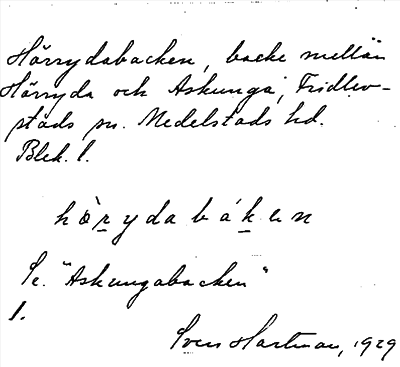 Hörrydabacken, backe mellan
Hörryda och Askunga, Fridlev-
stads sn. Medelstads hd.
Blek. l.
hö̀rydabáken
Se. "Askungabacken"
l.
Sven Hartman, 1929